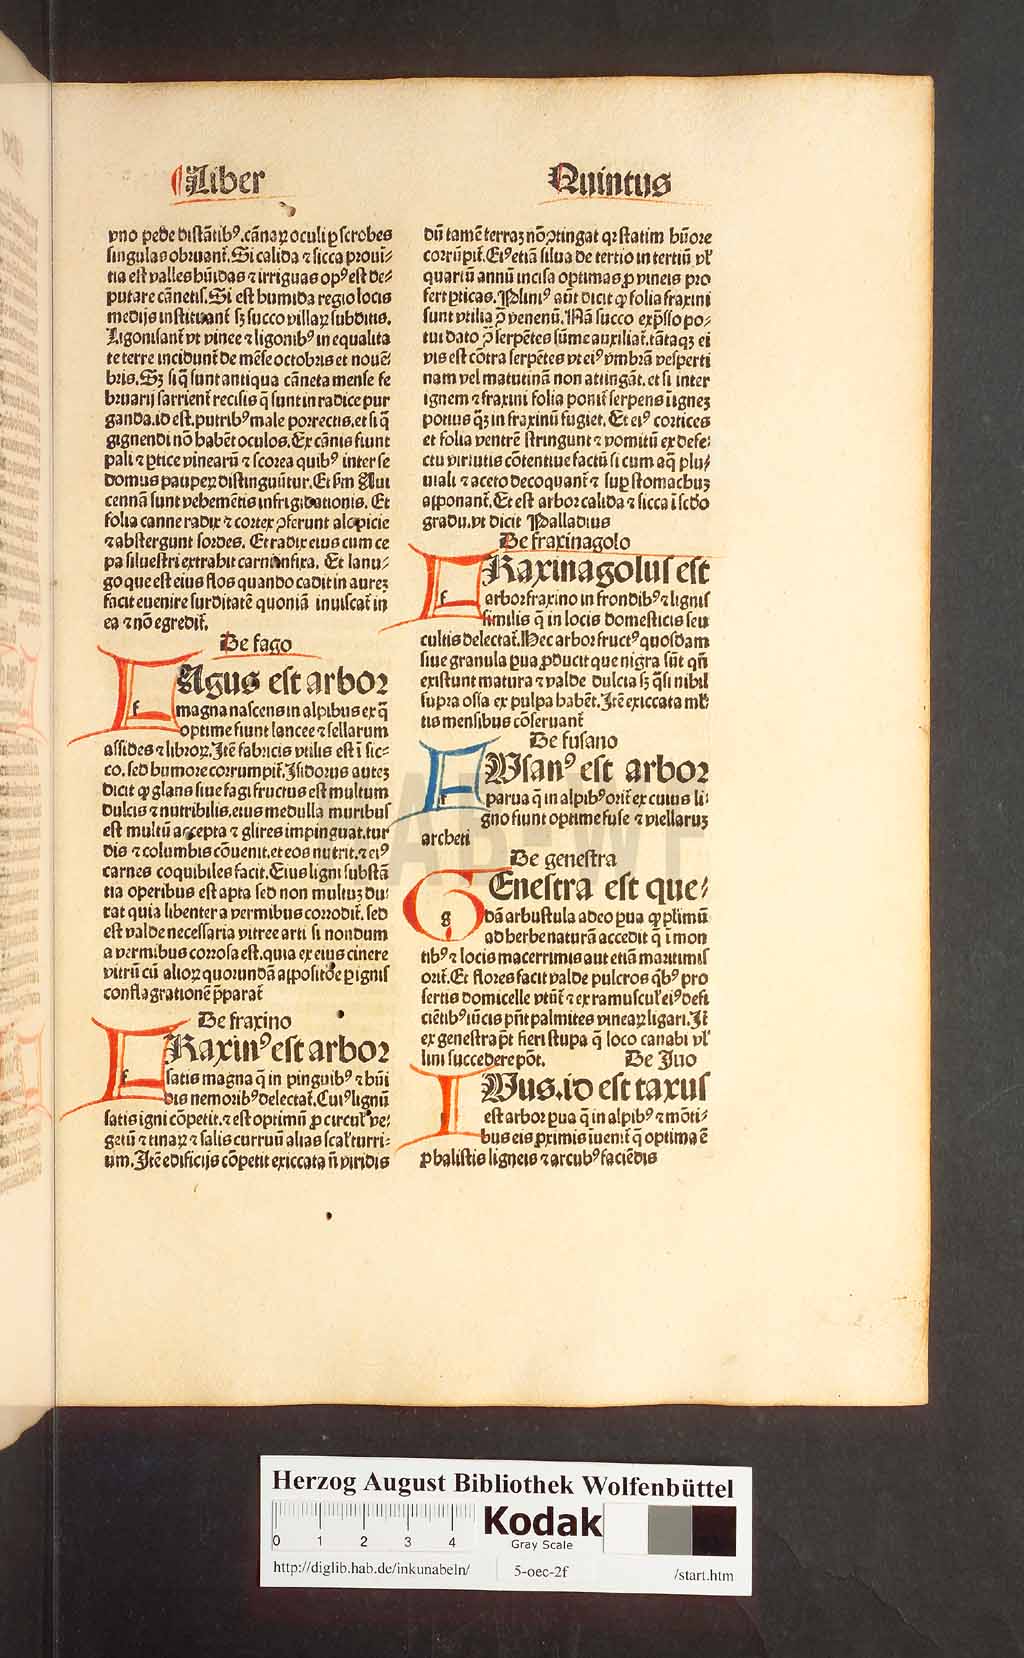 Liber Quintus
vno pede distātibꝰ.cānaꝝ oculi ꝑ scrobes
singulas obruant᷑.Si calida ⁊ sicca prouī-
tia est valles hūidas ⁊ irriguas opꝰ est de-
putare cānetis.Si est humida regio locis
medijs instituant sꝫ succo villaꝝ subditis.
Ligonisant᷑ vt vinee ⁊ ligonibꝰ in equalita
te terre incidunt᷑ de mēse octobris et nouē-
bris.Sꝫ si q̄ sunt antiqua cāneta mense fe
bruarij sarrient᷑ recisis q̄ sunt in radice pur
ganda.id est.putribꝰ male porrectis.et si q̄
gignendi nō habēt oculos.Ex cānis fiunt
pali ⁊ ꝑtice vinearū ⁊ scorea quibꝰ inter se
domus pauꝑeꝝ distinguūtur.Et ẜm Aui
cennā sunt vehemētis infrigidationis. Et
folia canne radix ⁊ cortex ꝓferunt alopicie
⁊ abstergunt sordes. Et radix eius cum ce
pa siluestri extrahit carni infixa. Et lanu-
go que est eius flos quando cadit in aureꝫ
facit euenire surditatē quoniā inuiscat᷑ in
ea ⁊ nō egredit᷑.
De fago
f Agus est arbor
magna nascens in alpibus ex q̄
optime fiunt lancee ⁊ sellarum
assides ⁊ libroꝝ.Itē fabricis vtilis est ī sic-
co.sed humore corrumpit᷑.Isidorus auteꝫ
dicit ꝙ glans siue fagi fructus est multum
dulcis ⁊ nutribilis.eius medulla muribus
est multū accepta ⁊ glires impinguat.tur
dis ⁊ columbis cōuenit.et eos nutrit.⁊ eiꝰ
carnes coquibiles facit.Eius ligni substā
tia operibus est apta sed non multuꝫ du-
rat quia libenter a vermibus corrodit᷑.sed
est valde necessaria vitree arti si nondum
a vermibus corrosa est.quia ex eius cinere
vitrū cū alioꝝ quorundā appositōe ꝑ ignis
conflagrationē p̄parat᷑
De fraxino
f Raxinꝰ est arbor
satis magna q̄ in pinguibꝰ ⁊ hūi
dis nemoribꝰ delectat᷑.Cuiꝰ lignū
satis igni cōpetit.⁊ est optimū ꝓ circul᷑ ve-
getū ⁊ tinaꝝ ⁊ salis curruū alias scal᷑ turri-
um.Itē edificijs cōpetit exiccata n̄ viridis
dū tamē terraꝫ nō ꝯtingat qꝛ statim hūore
corrūpit᷑.Eiꝰ etiā silua de tertio in tertiū vl᷑
quartū annū incisa optimas ꝓ vineis pro
fert ꝑticas.Pliniꝰ aūt dicit ꝙ folia fraxini
sunt vtilia ꝯ̄ venenū.Nā succo exp̄sso po-
tui dato ꝯ̄ serpētes sūme auxiliat᷑.tātaqꝫ ei
vis est cōtra serpētes vt eiꝰ vmbrā vesperti
nam vel matutinā non attingāt.et si inter
ignem ⁊ fraxini folia ponit᷑ serpens ī igneꝫ
potius qꝫ in fraxinū fugiet. Et eiꝰ cortices
et folia ventrē stringunt ⁊ vomitū ex defe-
ctu virtutis cōtentiue factū si cum aq̄ plu-
uiali ⁊ aceto decoquant᷑ ⁊ suꝑ stomachuꝫ
apponant᷑.Et est arbor calida ⁊ sicca ī scdo
gradu.vt dicit Palladius
De fraxinagolo
f Raxinagolus est
arbor fraxino in frondibꝰ ⁊ lignis
similis q̄ in locis domesticis seu
cultis delectat᷑.Hec arbor fructꝰ quosdam
siue granula ꝑua ꝓducit que nigra sūt qn̄
existunt matura ⁊ valde dulcia sꝫ q̄si nihil
supra ossa ex pulpa habēt.Itē exiccata ml᷑
tis mensibus cōseruant᷑
De fusano
f Vsanꝰ est arbor
parua q̄ in alpibꝰ orit᷑ ex cuius li-
gno fiunt optime fuse ⁊ viellaruꝫ
archeti
De genestra
g Enestra est que-
dā arbustula adeo ꝑua ꝙ plimū
ad herbe naturā accedit q̄ ī mon
tibꝰ ⁊ locis macerrimis aut etiā maritimis
orit᷑.Et flores facit valde pulcros q̄bꝰ pro
sertis domicelle vtūt᷑ ⁊ ex ramuscul᷑ eiꝰ defi
ciētibꝰ iūcis pn̄t palmites vineaꝝ ligari.It᷑
ex genestra pt᷑ fieri stupa q̄ loco canabi vl᷑
lini succedere pōt. De Iuo
I Vus.id est taxus
est arbor ꝑua q̄ in alpibꝰ ⁊ mōti-
bus eis ꝓximis īuenit᷑ q̄ optima ē
ꝓ balistis ligneis ⁊ arcubꝰ faciēdis
HAB-WF
Herzog August Bibliothek Wolfenbüttel
0 1 2 3 4
Kodak
Gray Scale
http://diglib.hab.de/inkunabeln/ 5-oec-2f /start.htm